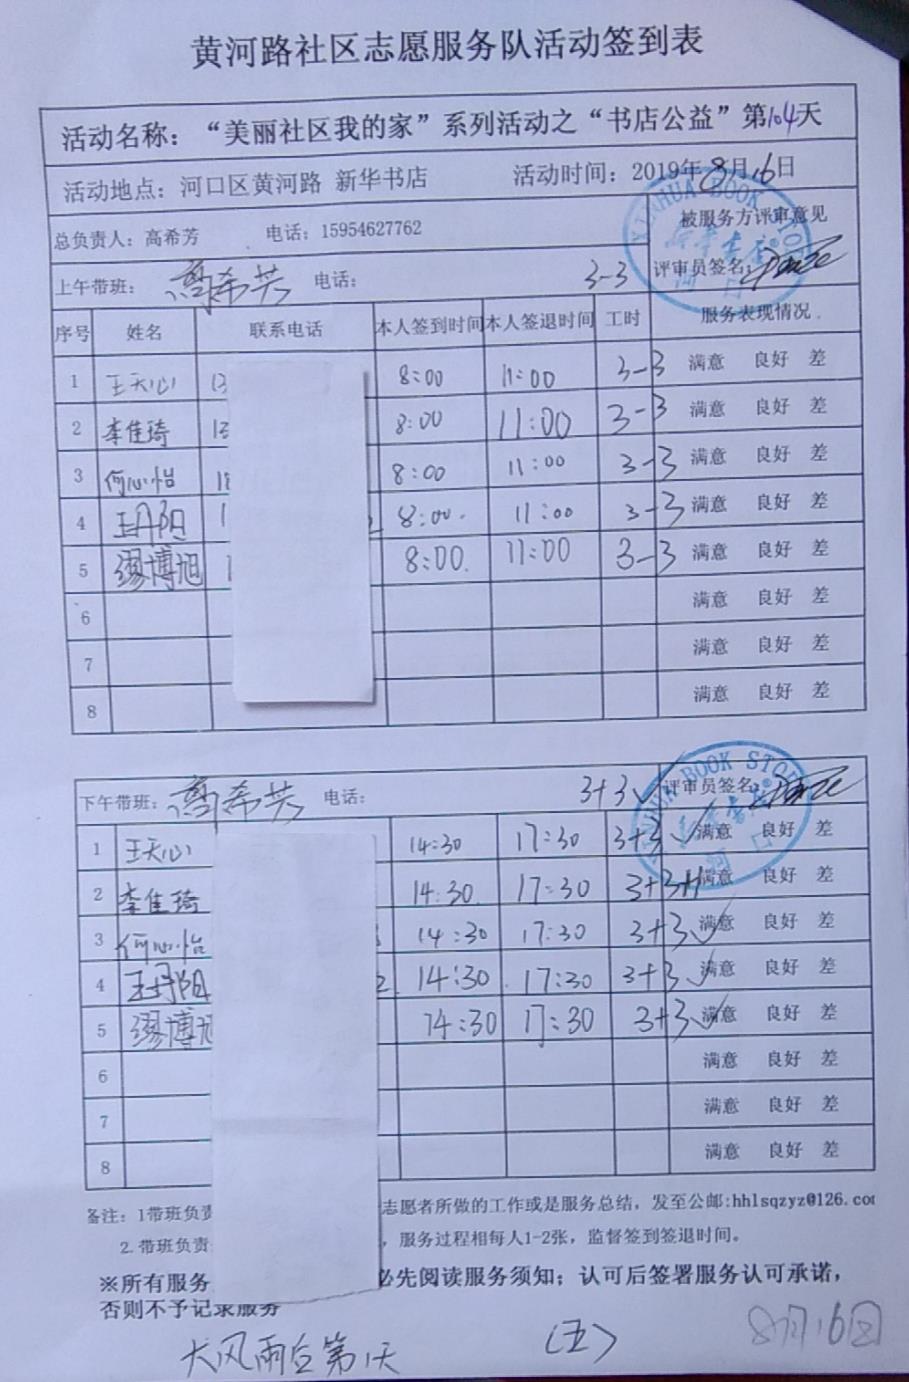 黄河路社区志愿服务队活动签到表
活动名称：“美丽社区我的家”系列活动之“书店公益”第104天
活动地点：河口区黄河路 新华书店 活动时间：2019年8月16日
总负责人：高希芳 电话：15954627762 被服务方评审意见
上午带班：高希芳 电话： 3-3 评审员签名：
序号 姓名 联系电话 本人签到时间 本人签退时间 工时 服务表现情况
1 王天心 13 8:00 11:00 3-3 满意 良好 差
2 李佳琦 13 8:00 11:00 3-3 满意 良好 差
3 何心怡 18 8:00 11:00 3-3 满意 良好 差
4 王丹阳 1 8:00. 11:00 3-3 满意 良好 差
5 缪博旭 1 8:00. 11:00 3-3 满意 良好 差
6 满意 良好 差
7 满意 良好 差
8 满意 良好 差
XINHUA BOOK STORE
新华书店
河口
下午带班：高希芳 电话： 3+3√ 评审员签名：
1 王天心 14:30 17:30 3+3√ 满意 良好 差
2 李佳琦 14:30. 17:30 3+3 满意 良好 差
3 何心怡 14:30 17:30 3+3√ 满意 良好 差
4 王丹阳 2. 14:30 17:30 3+3√ 满意 良好 差
5 缪博旭 14:30 17:30 3+3√ 满意 良好 差
6 满意 良好 差
7 满意 良好 差
8 满意 良好 差
XINHUA BOOK STORE
新华书店
河口
备注：1带班负责 志愿者所做的工作或是服务总结，发至公邮:hhlsqzyz@126.com
2.带班负责 ，服务过程相每人1-2张，监督签到签退时间。
※所有服务 必先阅读服务须知；认可后签署服务认可承诺，
否则不予记录服务
大风雨后第1天 (五) 8月16日